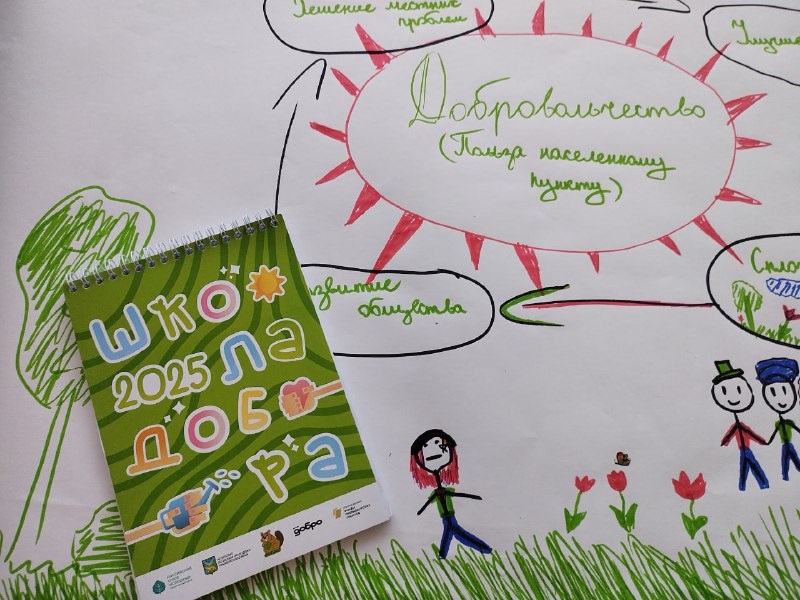 Решение местных
проблем
Добровольчество
(Польза населенному
пункту)
развитие
общества
Спло
ШКО
2025 ЛА
ДОБ
РА
добро